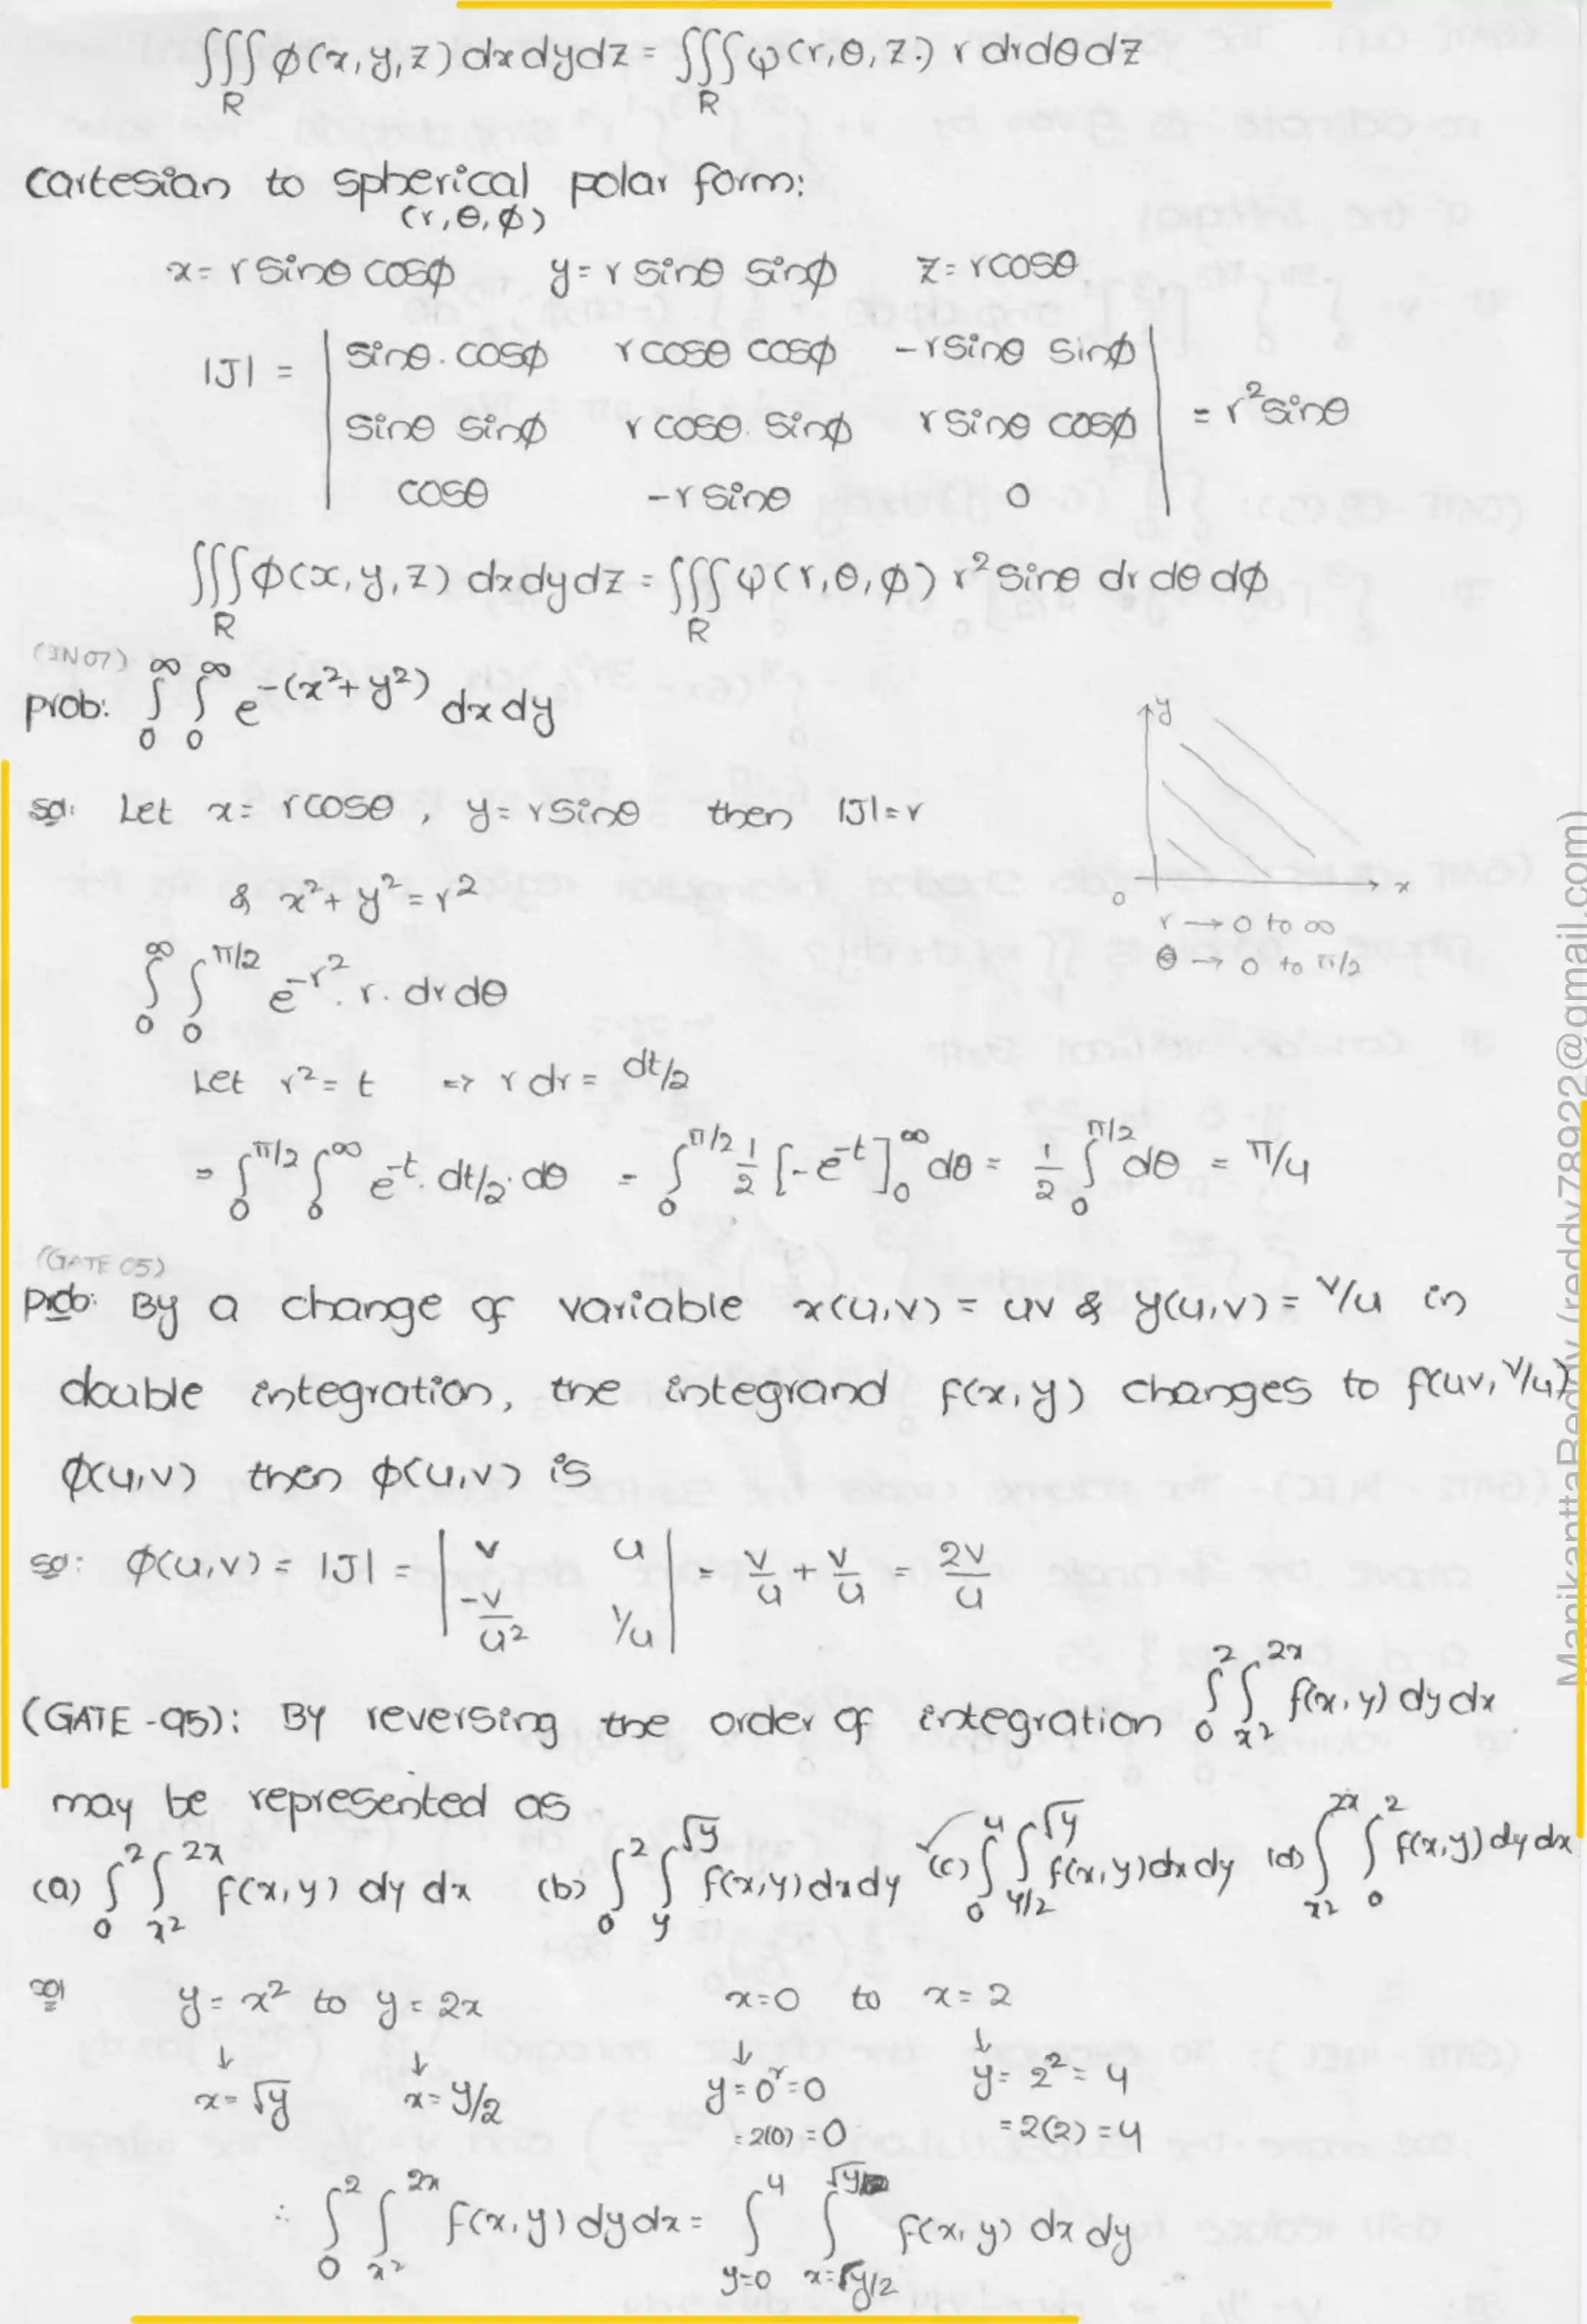 ∫∫∫_R φ(x, y, z) dx dy dz = ∫∫∫_R ψ(r, θ, z.) r dr dθ dz
Cartesian to spherical polar form:
(r, θ, φ)
x = r sinθ cosφ y = r sinθ sinφ z = r cosθ.
|J| = | sinθ. cosφ r cosθ cosφ -r sinθ sinφ |
| sinθ sinφ r cosθ. sinφ r sinθ cosφ | = r² sinθ
| cosθ -r sinθ 0 |
∫∫∫_R φ(x, y, z) dx dy dz = ∫∫∫_R ψ(r, θ, φ) r² sinθ dr dθ dφ
(IN07)
prob: ∫_0^∞ ∫_0^∞ e^-(x²+y²) dx dy
y
sol: Let x = r cosθ , y = r sinθ then |J| = r
& x² + y² = r²
0 x
r → 0 to ∞
θ → 0 to π/2
∫_0^∞ ∫_0^π/2 e^-r² . r . dr dθ
Let r² = t => r dr = dt/2
= ∫_0^π/2 ∫_0^∞ e^-t. dt/2 . dθ = ∫_0^π/2 1/2 [-e^-t]_0^∞ dθ = 1/2 ∫_0^π/2 dθ = π/4
(GATE 05)
prob: By a change of variable x(u,v) = uv & y(u,v) = v/u in
double integration, the integrand f(x, y) changes to f(uv, v/u)
φ(u,v) then φ(u,v) is
sol: φ(u,v) = |J| = | v u |
| -v/u² 1/u | = v/u + v/u = 2v/u
(GATE -95): By reversing the order of integration ∫_0^2 ∫_x²^2x f(x, y) dy dx
may be represented as
(a) ∫_0^2 ∫_x²^2x f(x, y) dy dx (b) ∫_0^2 ∫_y^√y f(x, y) dx dy (c) ∫_0^4 ∫_y/2^√y f(x, y) dx dy (d) ∫_x²^2x ∫_0^2 f(x, y) dy dx
sol y = x² to y = 2x x = 0 to x = 2
↓ ↓ ↓ ↓
x = √y x = y/2 y = 0² = 0 y = 2² = 4
= 2(0) = 0 = 2(2) = 4
∴ ∫_0^2 ∫_x²^2x f(x, y) dy dx = ∫_y=0^4 ∫_x=y/2^√y f(x, y) dx dy
ManikanttaReddy (reddy78922@gmail.com)